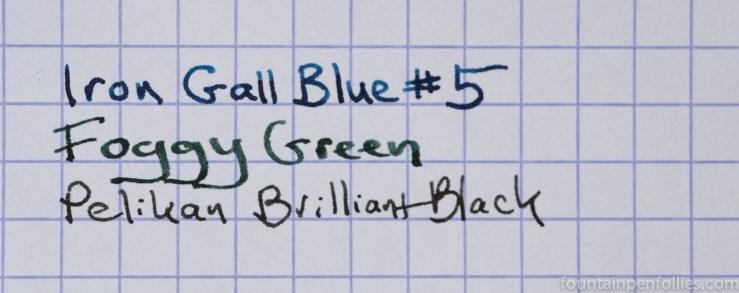 Iron Gall Blue #5
Foggy Green
Pelikan Brilliant Black
fountainpenfollies.com